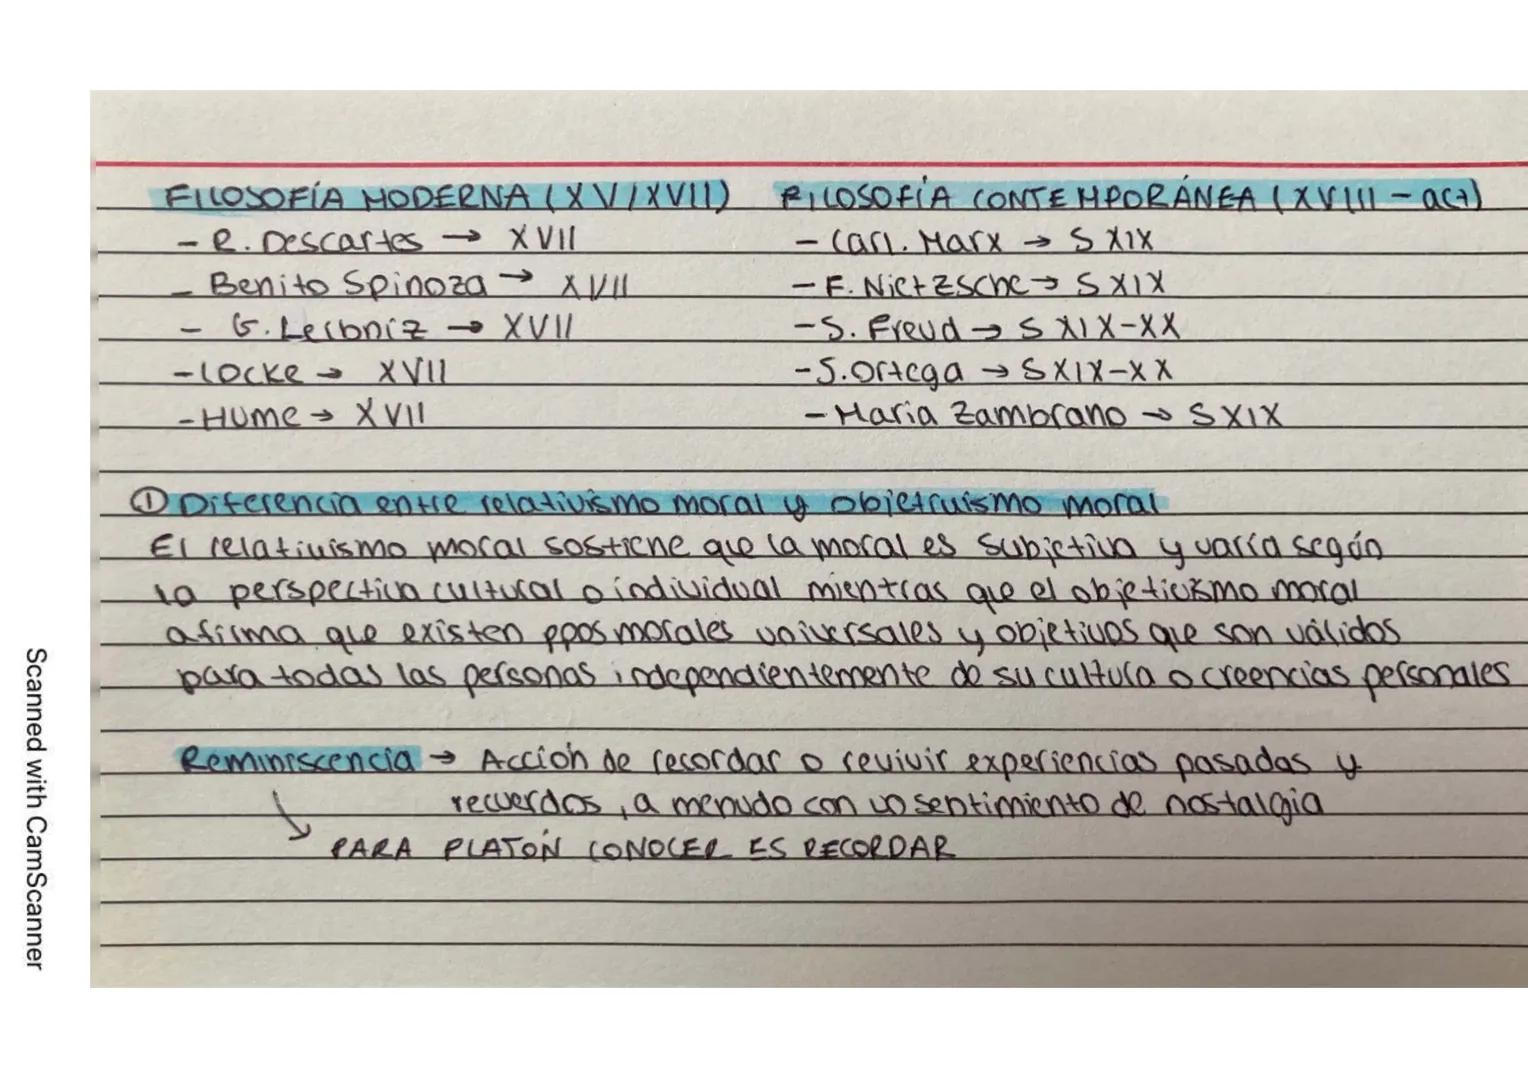 FILOSOFÍA MODERNA (XV/XVII)
- R. Descartes → XVII
- Benito Spinoza → XVII
- G. Leibniz → XVII
- Locke → XVII
- Hume → XVII
FILOSOFÍA CONTEMPORÁNEA (XVIII - act)
- Carl. Marx → S XIX
- F. Nietzsche → S XIX
- S. Freud → S XIX-XX
- J. Ortega → S XIX-XX
- Maria Zambrano → S XIX
① Diferencia entre relativismo moral y objetruismo moral
El relativismo moral sostiene que la moral es subjetiva y varía según
la perspectiva cultural o individual mientras que el objetivismo moral
afirma que existen ppos morales universales y objetivos que son válidos
para todas las personas independientemente de su cultura o creencias personales
Reminiscencia → Acción de recordar o revivir experiencias pasadas y
recuerdos, a menudo con un sentimiento de nostalgia
↘ PARA PLATÓN CONOCER ES RECORDAR
Scanned with CamScanner